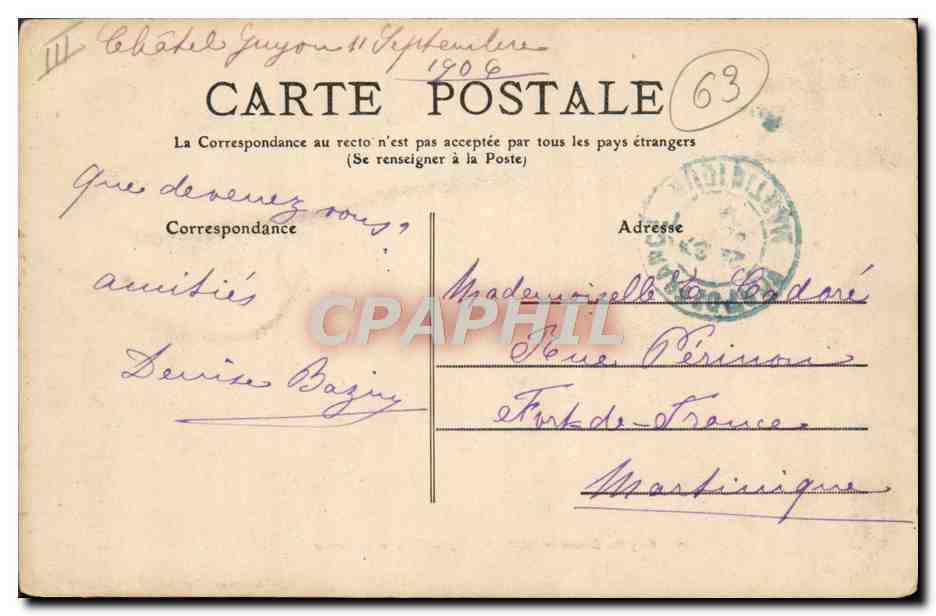 III
Châtel Guyon 11 Septembre
1906
63
CARTE POSTALE
La Correspondance au recto n'est pas acceptée par tous les pays étrangers
(Se renseigner à la Poste)
Que devenez vous?
Correspondance
Adresse
MARTINIQUE
FORT DE FRANCE
amitiés
Mademoiselle C. Cadoré
CPAPHIL
Denise Baziny
Rue Périnon
Fort-de-France
Martinique